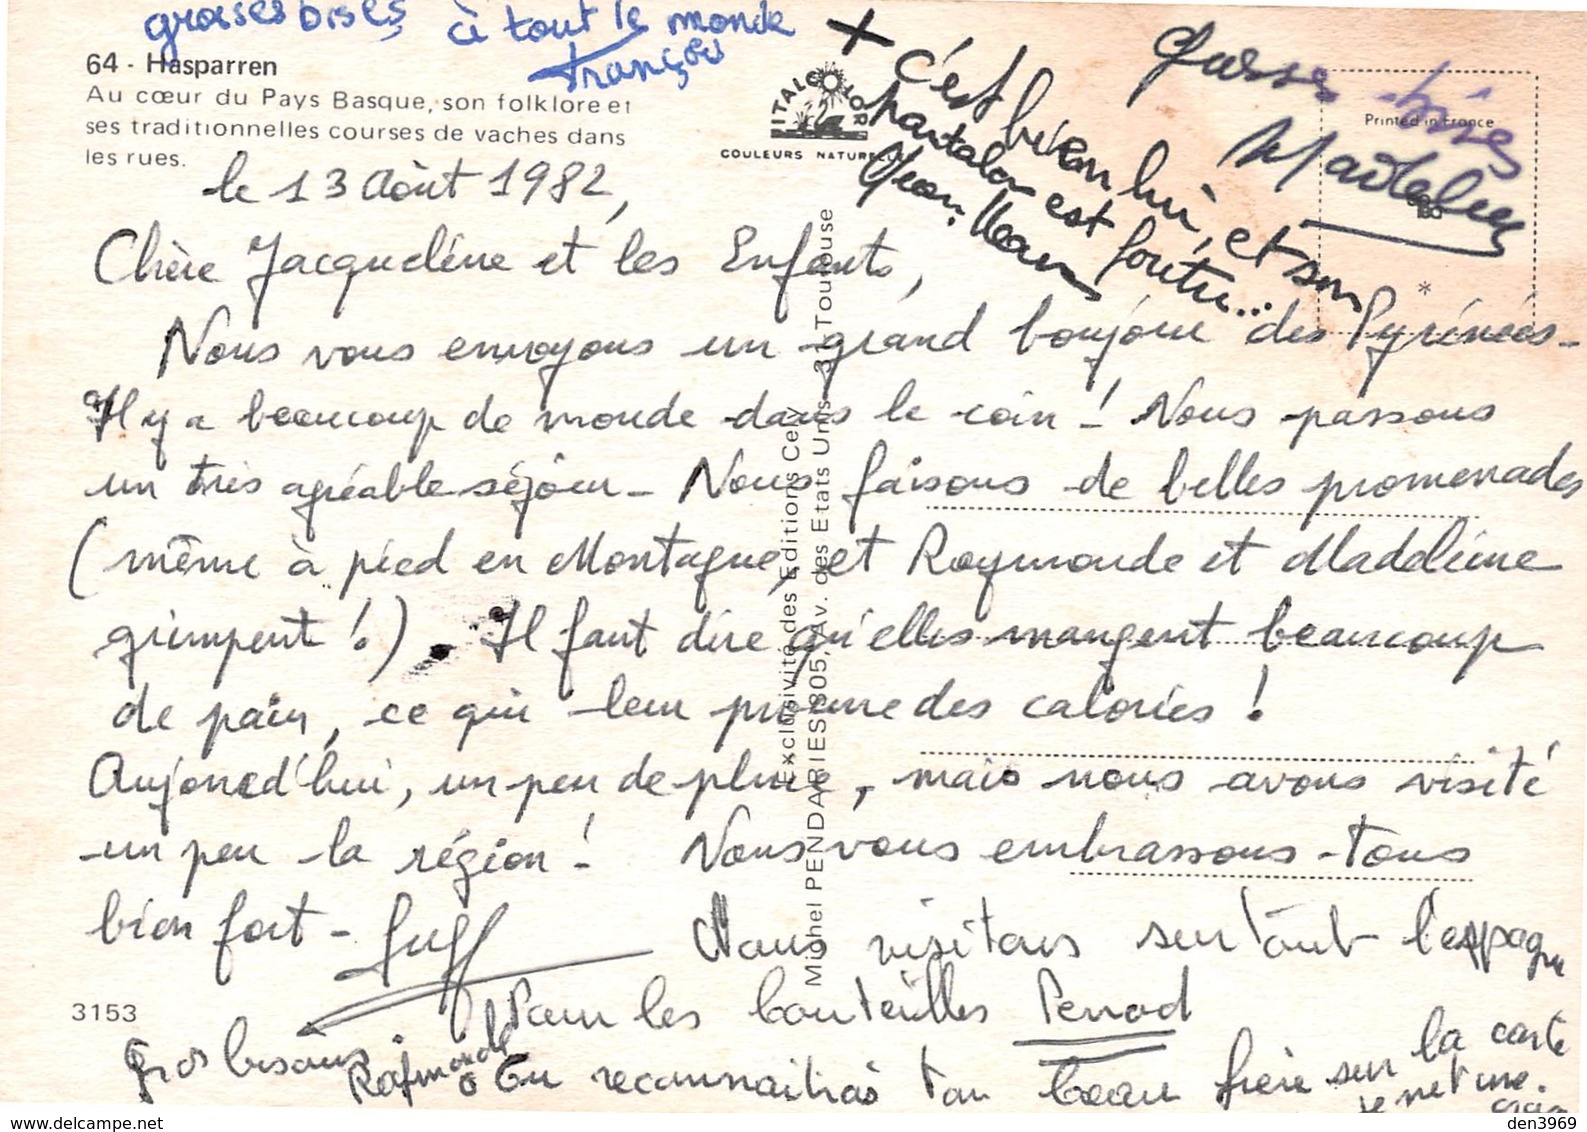 grosses bises à tout le monde
François
64 - Hasparren
Au cœur du Pays Basque, son folklore et
ses traditionnelles courses de vaches dans
les rues.
ITALCOLOR
COULEURS NATURELLES
+ c'est bien lui, et son
pantalon est foutu...
Grosses bises
Madeleine
Printed in France
le 13 Août 1982,
Chère Jacqueline et les Enfants,
Nous vous envoyons un grand bonjour des Pyrénées -
Il y a beaucoup de monde dans le coin ! Nous passons
un très agréable séjour - Nous faisons de belles promenades
(même à pied en Montagne, et Raymonde et Madeleine
grimpent !). Il faut dire qu'elles mangent beaucoup
de pain, ce qui leur procure des calories !
Aujourd'hui, un peu de pluie, mais nous avons visité
un peu la région ! Nous vous embrassons tous
bien fort -
Nous visitons surtout l'espagne
Pour les bouteilles Pernod
3153
Gros bisous
Raymonde
Tu reconnaitras ton beau frère sur la carte
Exclusivité des Editions Cely
Michel PENDARIES 805, Av. des Etats Unis - 31 Toulouse
den3969